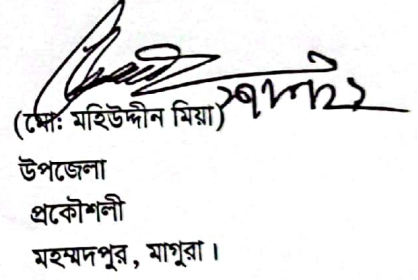 (মোঃ মহিউদ্দীন মিয়া)
উপজেলা
প্রকৌশলী
মহম্মদপুর, মাগুরা।